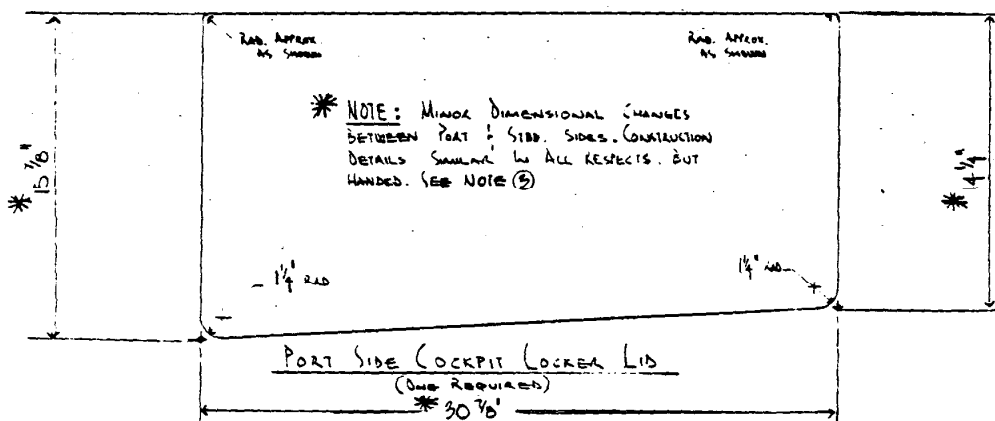 RAD. APPROX.
AS SHOWN
RAD. APPROX.
AS SHOWN
* NOTE: MINOR DIMENSIONAL CHANGES
BETWEEN PORT & STBD. SIDES. CONSTRUCTION
DETAILS SIMILAR IN ALL RESPECTS. BUT
HANDED. SEE NOTE ③
* 15 7/8"
* 14 1/4"
1 1/4" RAD
1 1/4" RAD
PORT SIDE COCKPIT LOCKER LID
(ONE REQUIRED)
* 30 7/8"